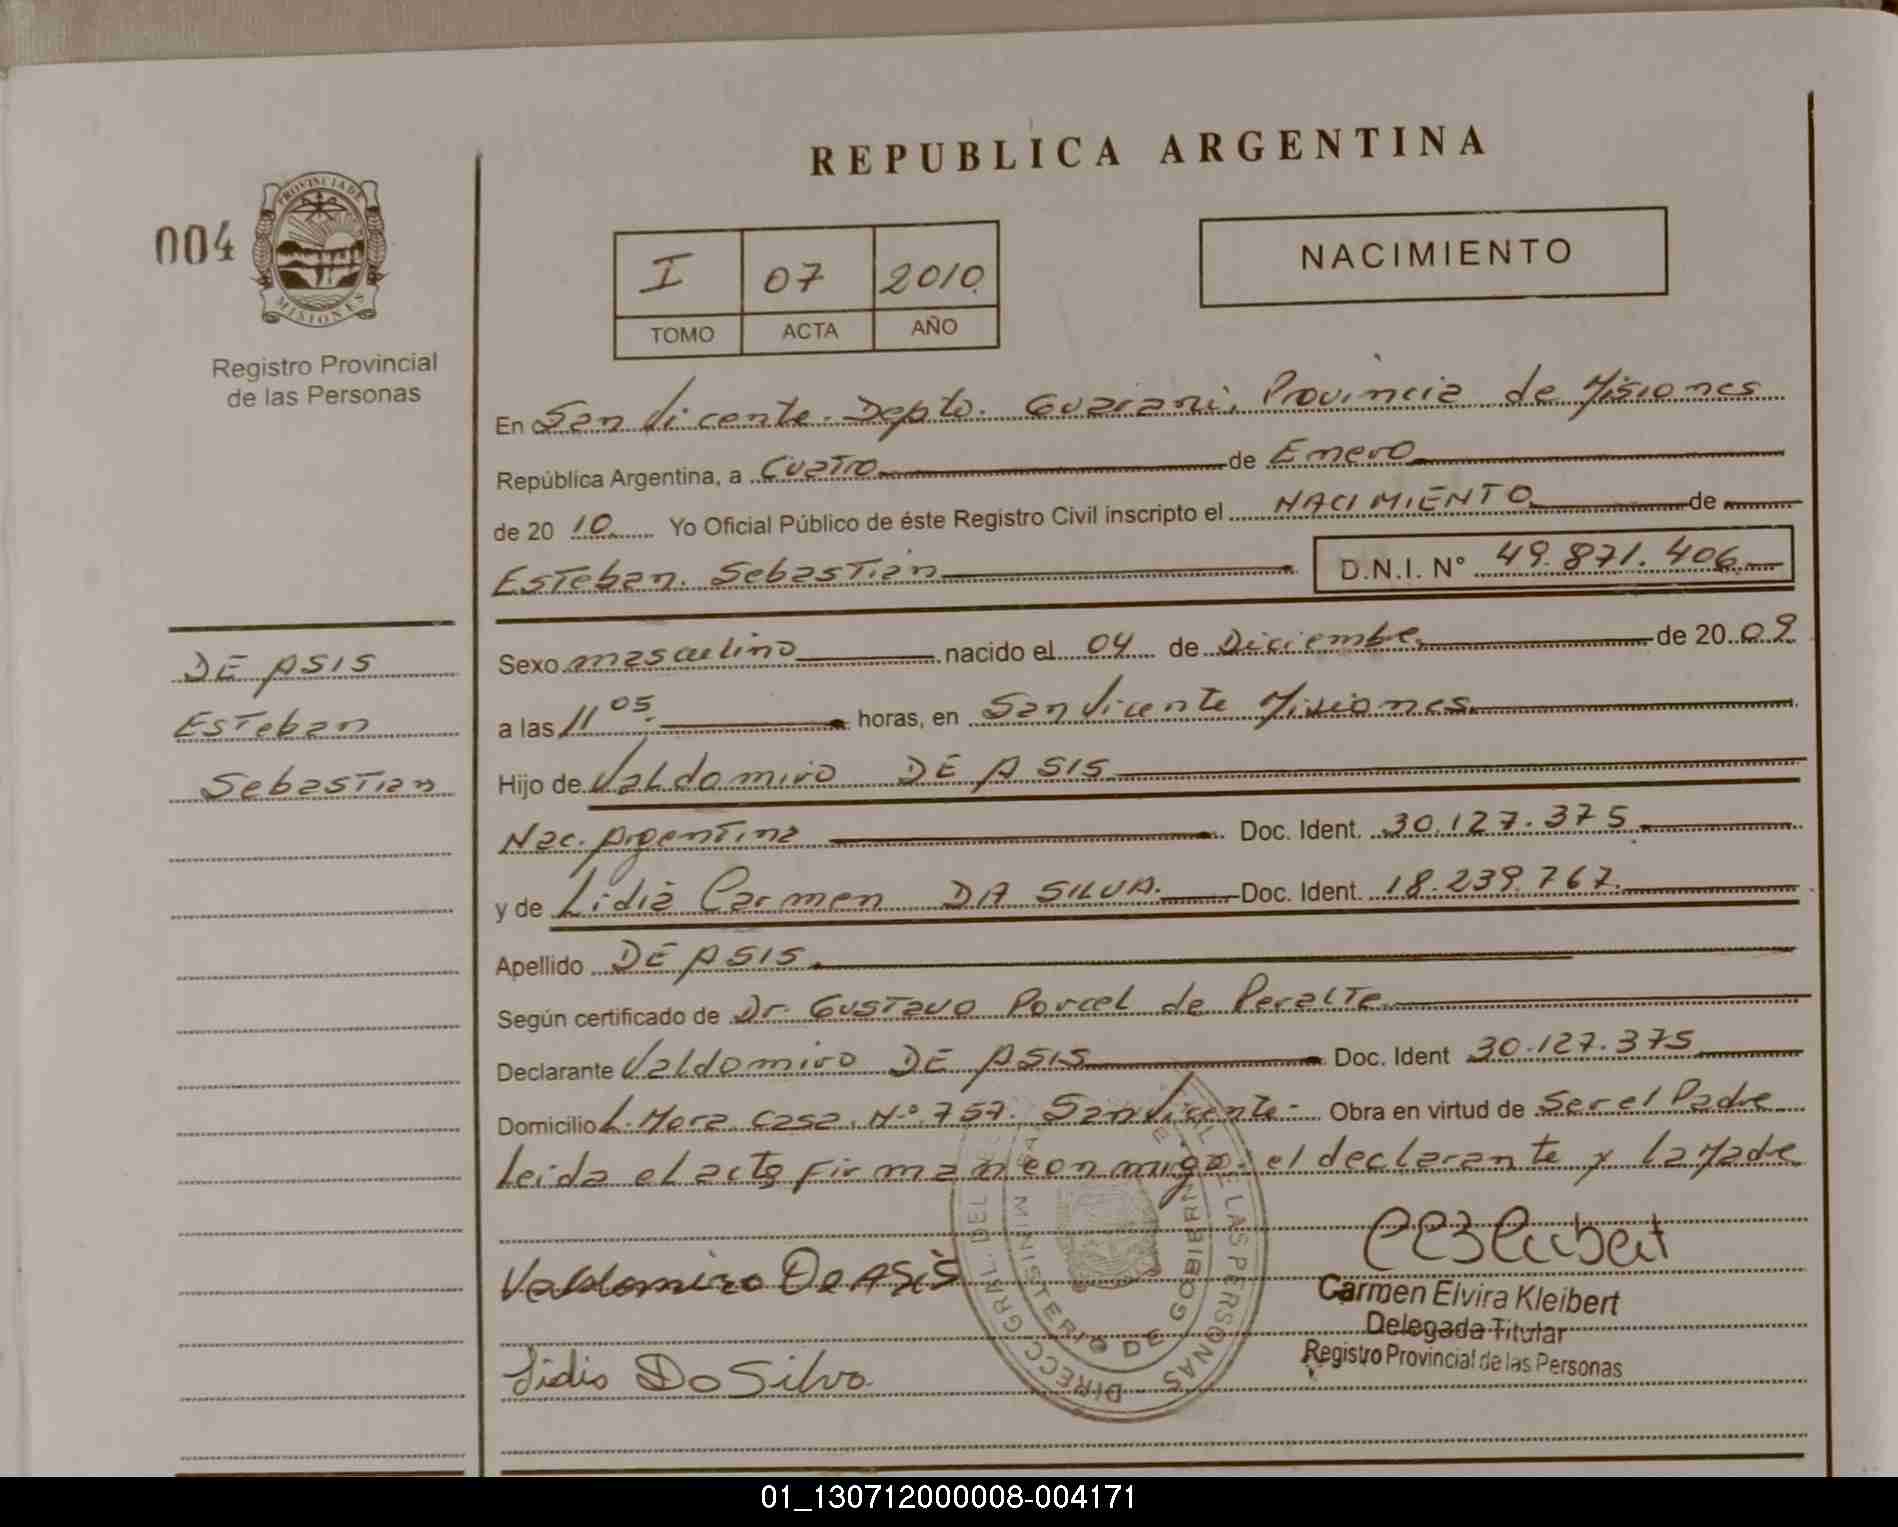 REPUBLICA ARGENTINA
004
PROVINCIA DE
MISIONES
Registro Provincial
de las Personas
I 07 2010
TOMO ACTA AÑO
NACIMIENTO
En San Vicente. Depto. Guarani, Provincia de Misiones
República Argentina, a Cuatro de Enero
de 20 10 Yo Oficial Público de éste Registro Civil inscripto el NACIMIENTO de
Esteban Sebastian D.N.I. N° 49.871.406
DE ASIS
Esteban
Sebastian
Sexo masculino nacido el 04 de Diciembre de 20 09
a las 11 05 horas, en San Vicente Misiones
Hijo de Valdomiro DE ASIS
Nac. Argentina Doc. Ident. 30.127.375
y de Lidia Carmen DA SILVA. Doc. Ident. 18.239.767
Apellido DE ASIS
Según certificado de Dr. Gustavo Porcel de Peralte
Declarante Valdomiro DE ASIS Doc. Ident 30.127.375
Domicilio L. Mora casa N.º 757. San Vicente- Obra en virtud de Ser el Padre
Leida el acta firman conmigo el declarante y la Madre
Valdomiro De Asis
Lidia Da Silva
DIRECC. GRAL. DEL LAS PERSONAS
MINISTERIO DE GOBIERNO
Carmen Elvira Kleibert
Delegada Titular
Registro Provincial de las Personas
01_130712000008-004171